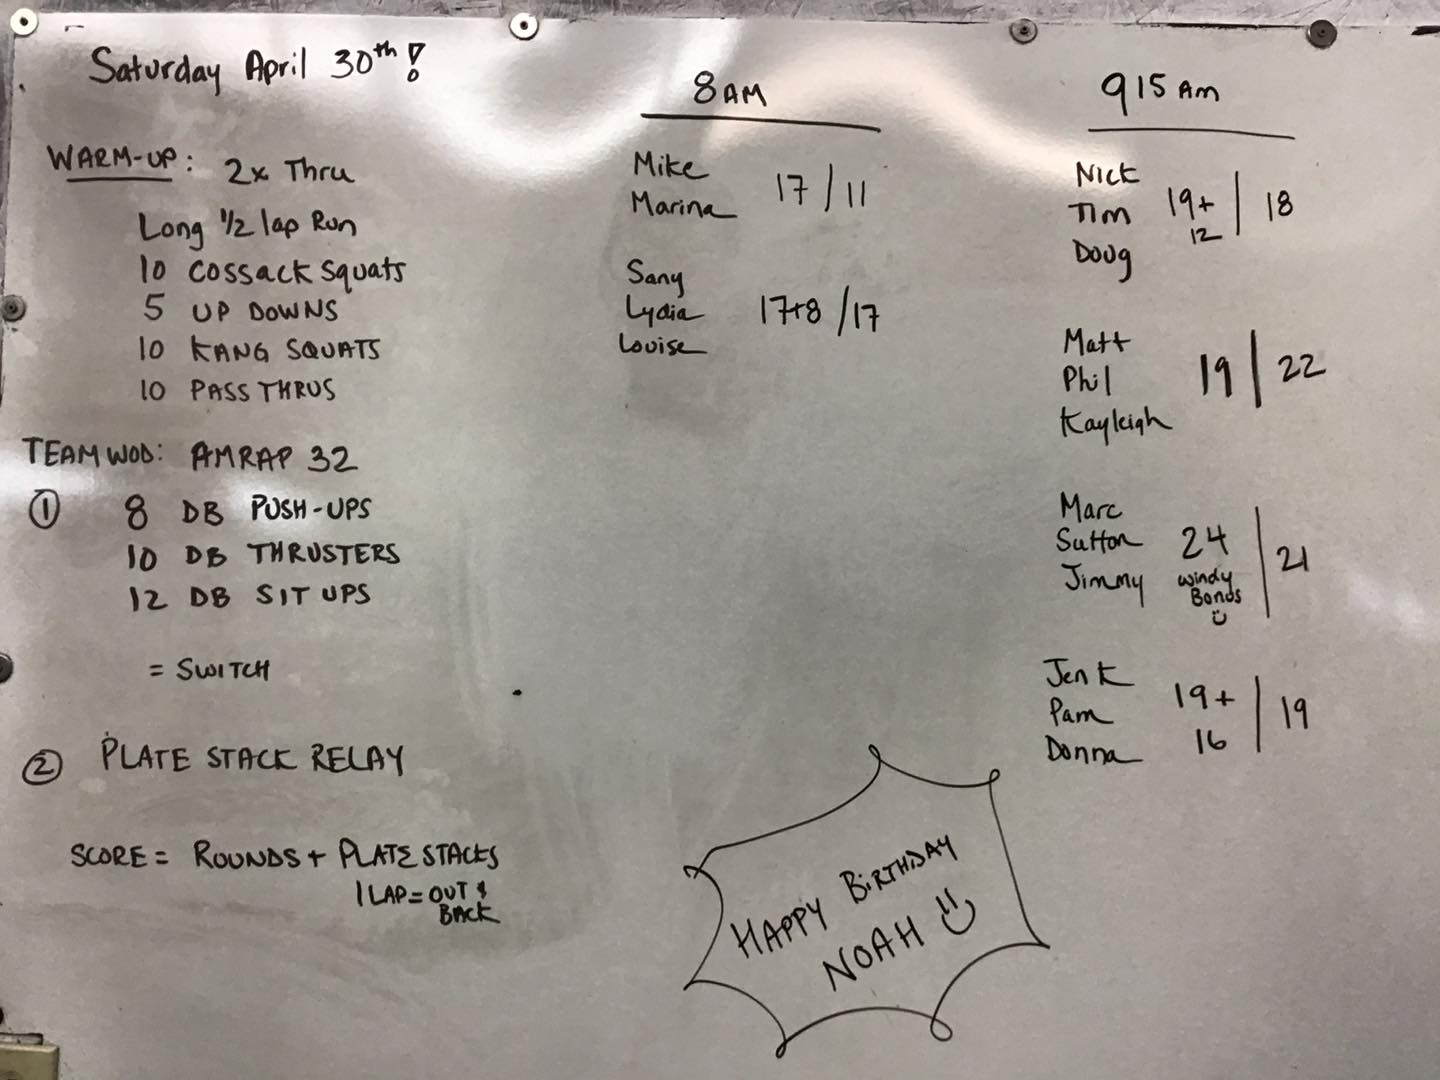 Saturday April 30th!
WARM-UP: 2x Thru
Long 1/2 lap Run
10 Cossack Squats
5 UP DOWNS
10 KANG SQUATS
10 PASS THRUS
TEAM WOD: AMRAP 32
① 8 DB PUSH-UPS
10 DB THRUSTERS
12 DB SIT UPS
= SWITCH
② PLATE STACK RELAY
SCORE = ROUNDS + PLATE STACKS
1 LAP = OUT &
BACK
8 AM
Mike
Marina
17 / 11
Sany
Lydia
Louise
17+8 / 17
915 AM
Nick
Tim
Doug
19+ | 18
12
Matt
Phil
Kayleigh
19 | 22
Marc
Sutton
Jimmy
24 | 21
windy
Bonus
Jen K
Pam
Donna
19+ | 19
16
HAPPY BIRTHDAY
NOAH